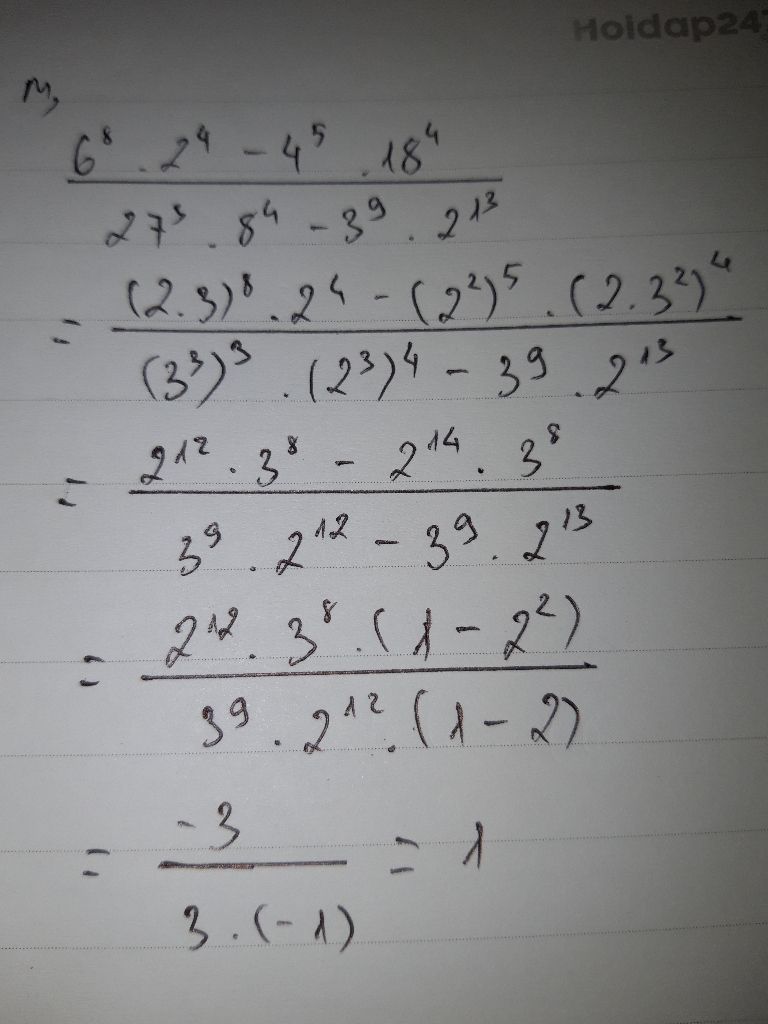 Hoidap247
m,
6⁸ . 2⁴ - 4⁵ . 18⁴
27³ . 8⁴ - 3⁹ . 2¹³
= (2.3)⁸ . 2⁴ - (2²)⁵ . (2.3²)⁴
(3³)³ . (2³)⁴ - 3⁹ . 2¹³
= 2¹² . 3⁸ - 2¹⁴ . 3⁸
3⁹ . 2¹² - 3⁹ . 2¹³
= 2¹² . 3⁸ . (1 - 2²)
3⁹ . 2¹² . (1 - 2)
= -3 = 1
3 . (-1)